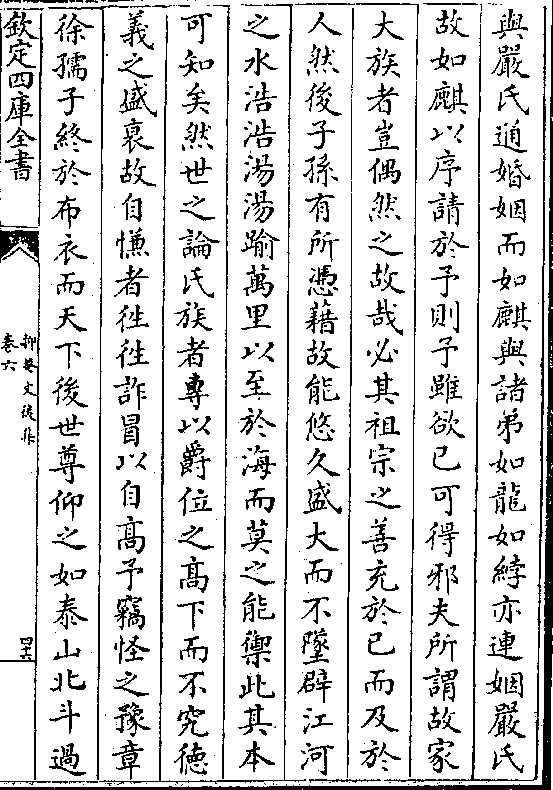 與嚴氏通婚姻而如麒與諸弟如龍如綍亦連姻嚴氏
故如麒以序請於予則予雖欲已可得邪夫所謂故家
大族者豈偶然之故哉必其祖宗之善充於已而及於
人然後子孫有所憑藉故能悠久盛大而不墜辟江河
之水浩浩湯湯踰萬里以至於海而莫之能禦此其本
可知矣然世之論氏族者專以爵位之髙下而不究徳
義之盛衰故自慊者徃徃詐冒以自髙予竊怪之豫章
徐孺子終於布衣而天下後世尊仰之如泰山北斗過
欽定四庫全書
抑菴文後集
卷六
四六